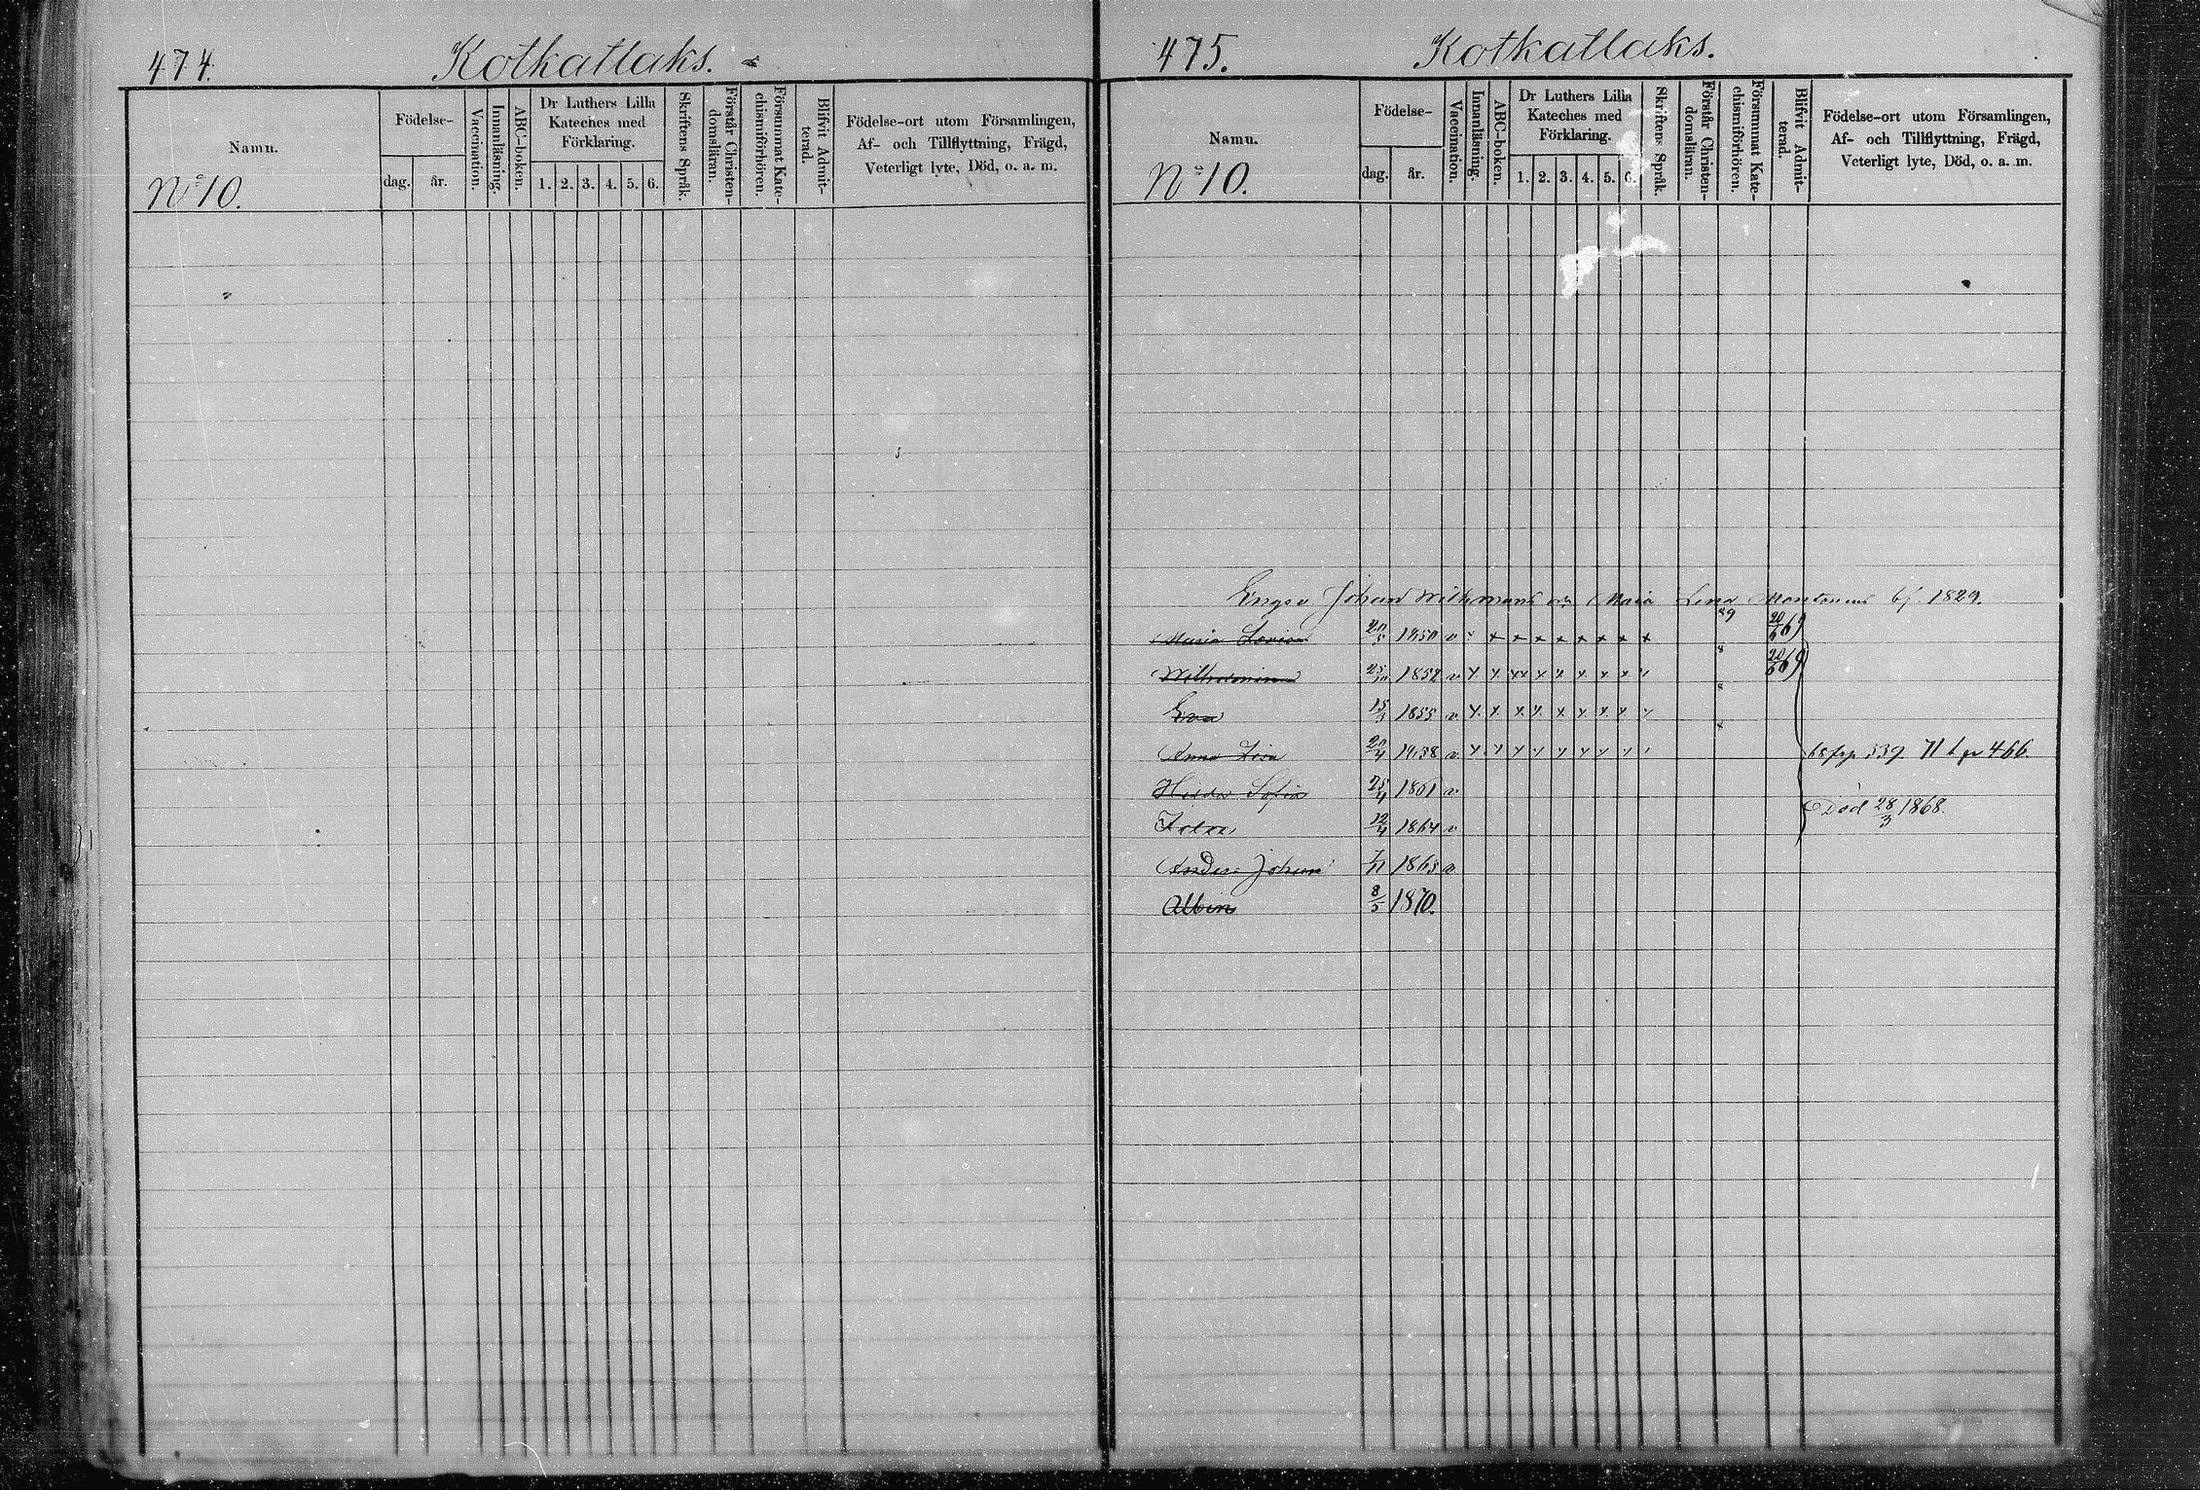 474. Kotkatlaks.
Namn.
Födelse-
dag. år.
Vaccination.
Innanläsning.
ABC-boken.
Dr Luthers Lilla
Kateches med
Förklaring.
1. 2. 3. 4. 5. 6.
Skriftens Språk.
Förstår Christen-
domsläran.
Försummat Kate-
chismiförhören.
Blifvit Admit-
terad.
Födelse-ort utom Församlingen,
Af- och Tillflyttning, Frägd,
Veterligt lyte, Död, o. a. m.
No 10.
475. Kotkatlaks.
Namn.
Födelse-
dag. år.
Vaccination.
Innanläsning.
ABC-boken.
Dr Luthers Lilla
Kateches med
Förklaring.
1. 2. 3. 4. 5. 6.
Skriftens Språk.
Förstår Christen-
domsläran.
Försummat Kate-
chismiförhören.
Blifvit Admit-
terad.
Födelse-ort utom Församlingen,
Af- och Tillflyttning, Frägd,
Veterligt lyte, Död, o. a. m.
No 10.
Johan Wickmans och Maria Lena 1829.
Maria Lovisa 20/5 1850 v x x x x x x x x 20/6 69
Wilhelmina 1852 v x x x x x x x x 20/6 69
Eva 15/3 1855 v x x x x x x x x
Anna Lisa 20/4 1858 v x x x x x x x x 539. 71 466.
Hilda Sofia 25/4 1861 v
12/4 1864 v Död 28/3 1868.
Anders Johan 7/11 1865 v
Albin 8/5 1870.